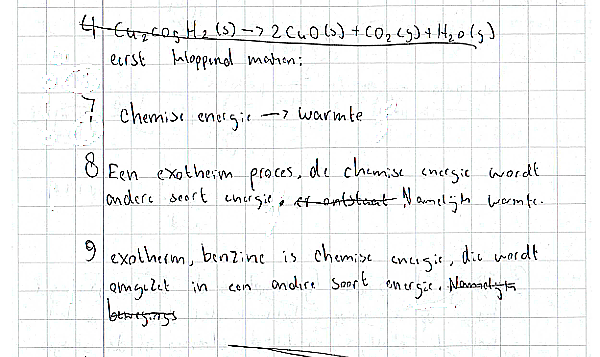 4 Cu2CO5H2(s) -> 2CuO(s) + CO2(g) + H2O(g)
eerst kloppend maken:
7 chemise energie -> warmte
8 Een exotherm proces, de chemise energie wordt
andere soort energie. er ontstaat Namelijk warmte.
9 exotherm, benzine is chemise energie, die wordt
omgezet in een andere soort energie. Namelijk
bewegings